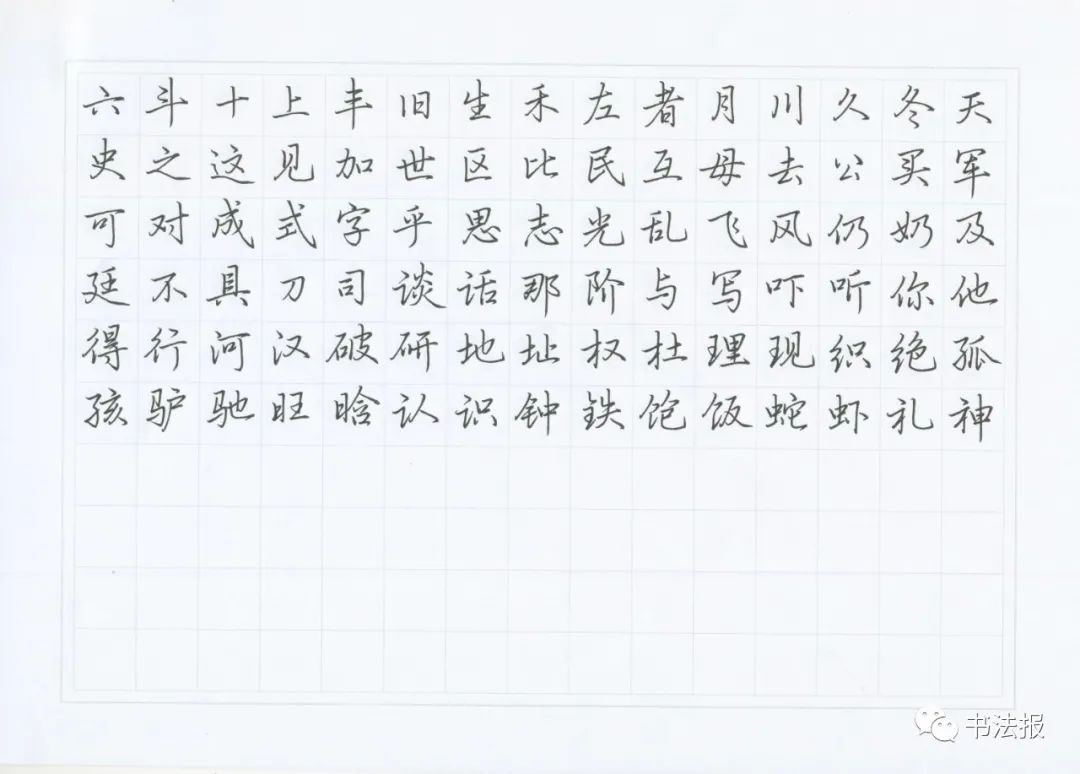 六斗十上丰旧生禾左者月川久冬天
史之这见加世区比民互母去公买军
可对成式字乎思志光乱飞风仍奶及
廷不具刀司谈话那阶与写吓听你他
得行河汉破研地址权杜理现织绝孤
孩驴驰旺晗认识钟铁饱饭蛇虾礼神
书法报